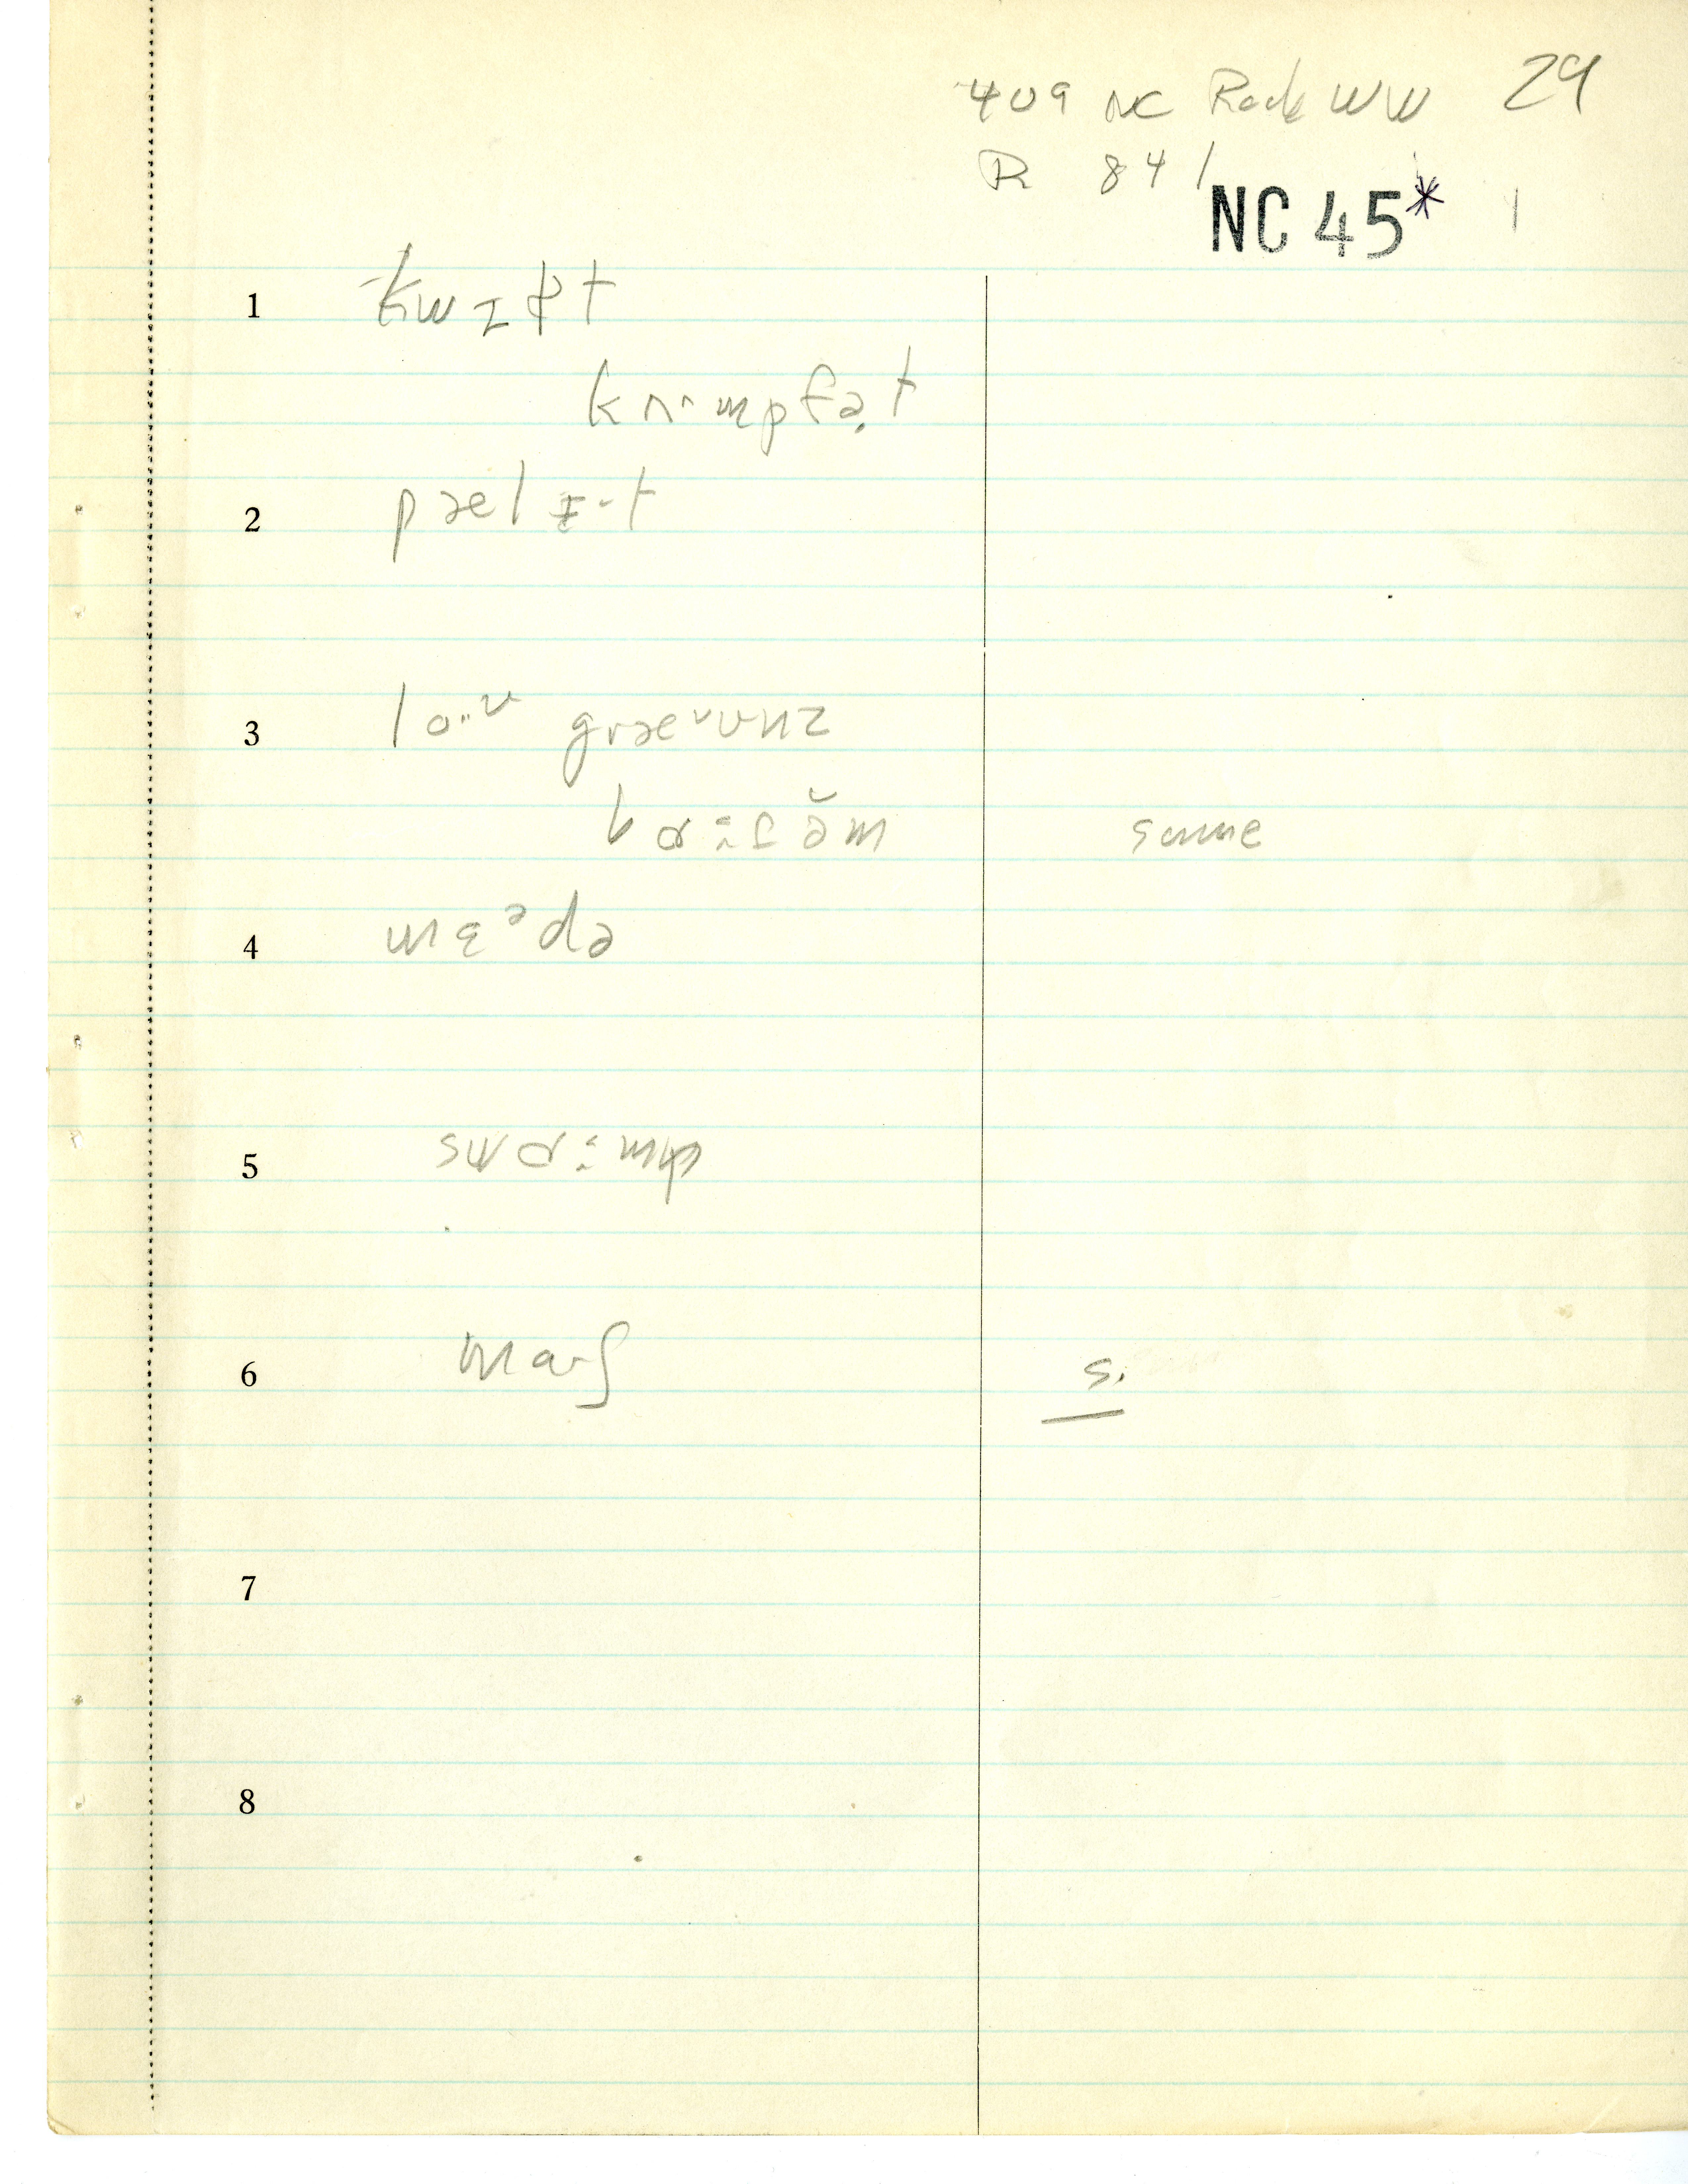 409 NC Rock WW 29
R 841
NC 45* 1
1 kwɪɫt
kʌ·mpfə̣t
2 pælɪ·t
3 lo··ʊ græʊʊnz
bɑ:təm̆ same
4 mɛᵊdə
5 swɑ:mp
6 ma·ʃ s.
7
8